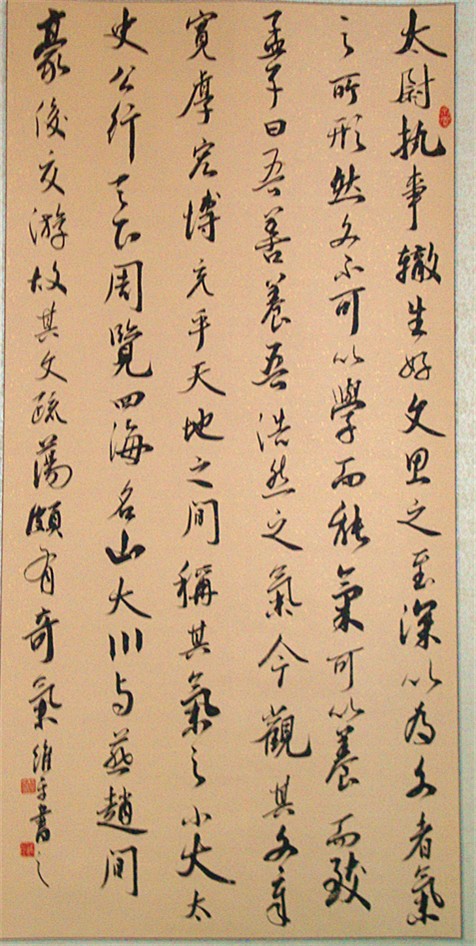 太尉执事轍生好文思之至深以為文者氣
之所形然文不可以學而能氣可以養而致
孟子曰吾善養吾浩然之氣今觀其文章
寬厚宏博充乎天地之間稱其氣之小大太
史公行天下周覽四海名山大川与燕趙間
豪俊交游故其文疏蕩頗有奇氣 維平書之